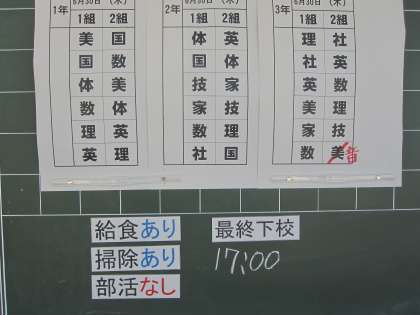 1年 6月30日 (木)
1組 2組
美 国
国 数
体 美
数 体
理 英
英 理
2年 6月30日 (木)
1組 2組
体 英
国 体
技 家
家 技
数 理
社 国
3年 6月30日 (木)
1組 2組
理 社
社 英
英 数
美 理
家 技
数 美 音
給食あり
掃除あり
部活なし
最終下校
17:00